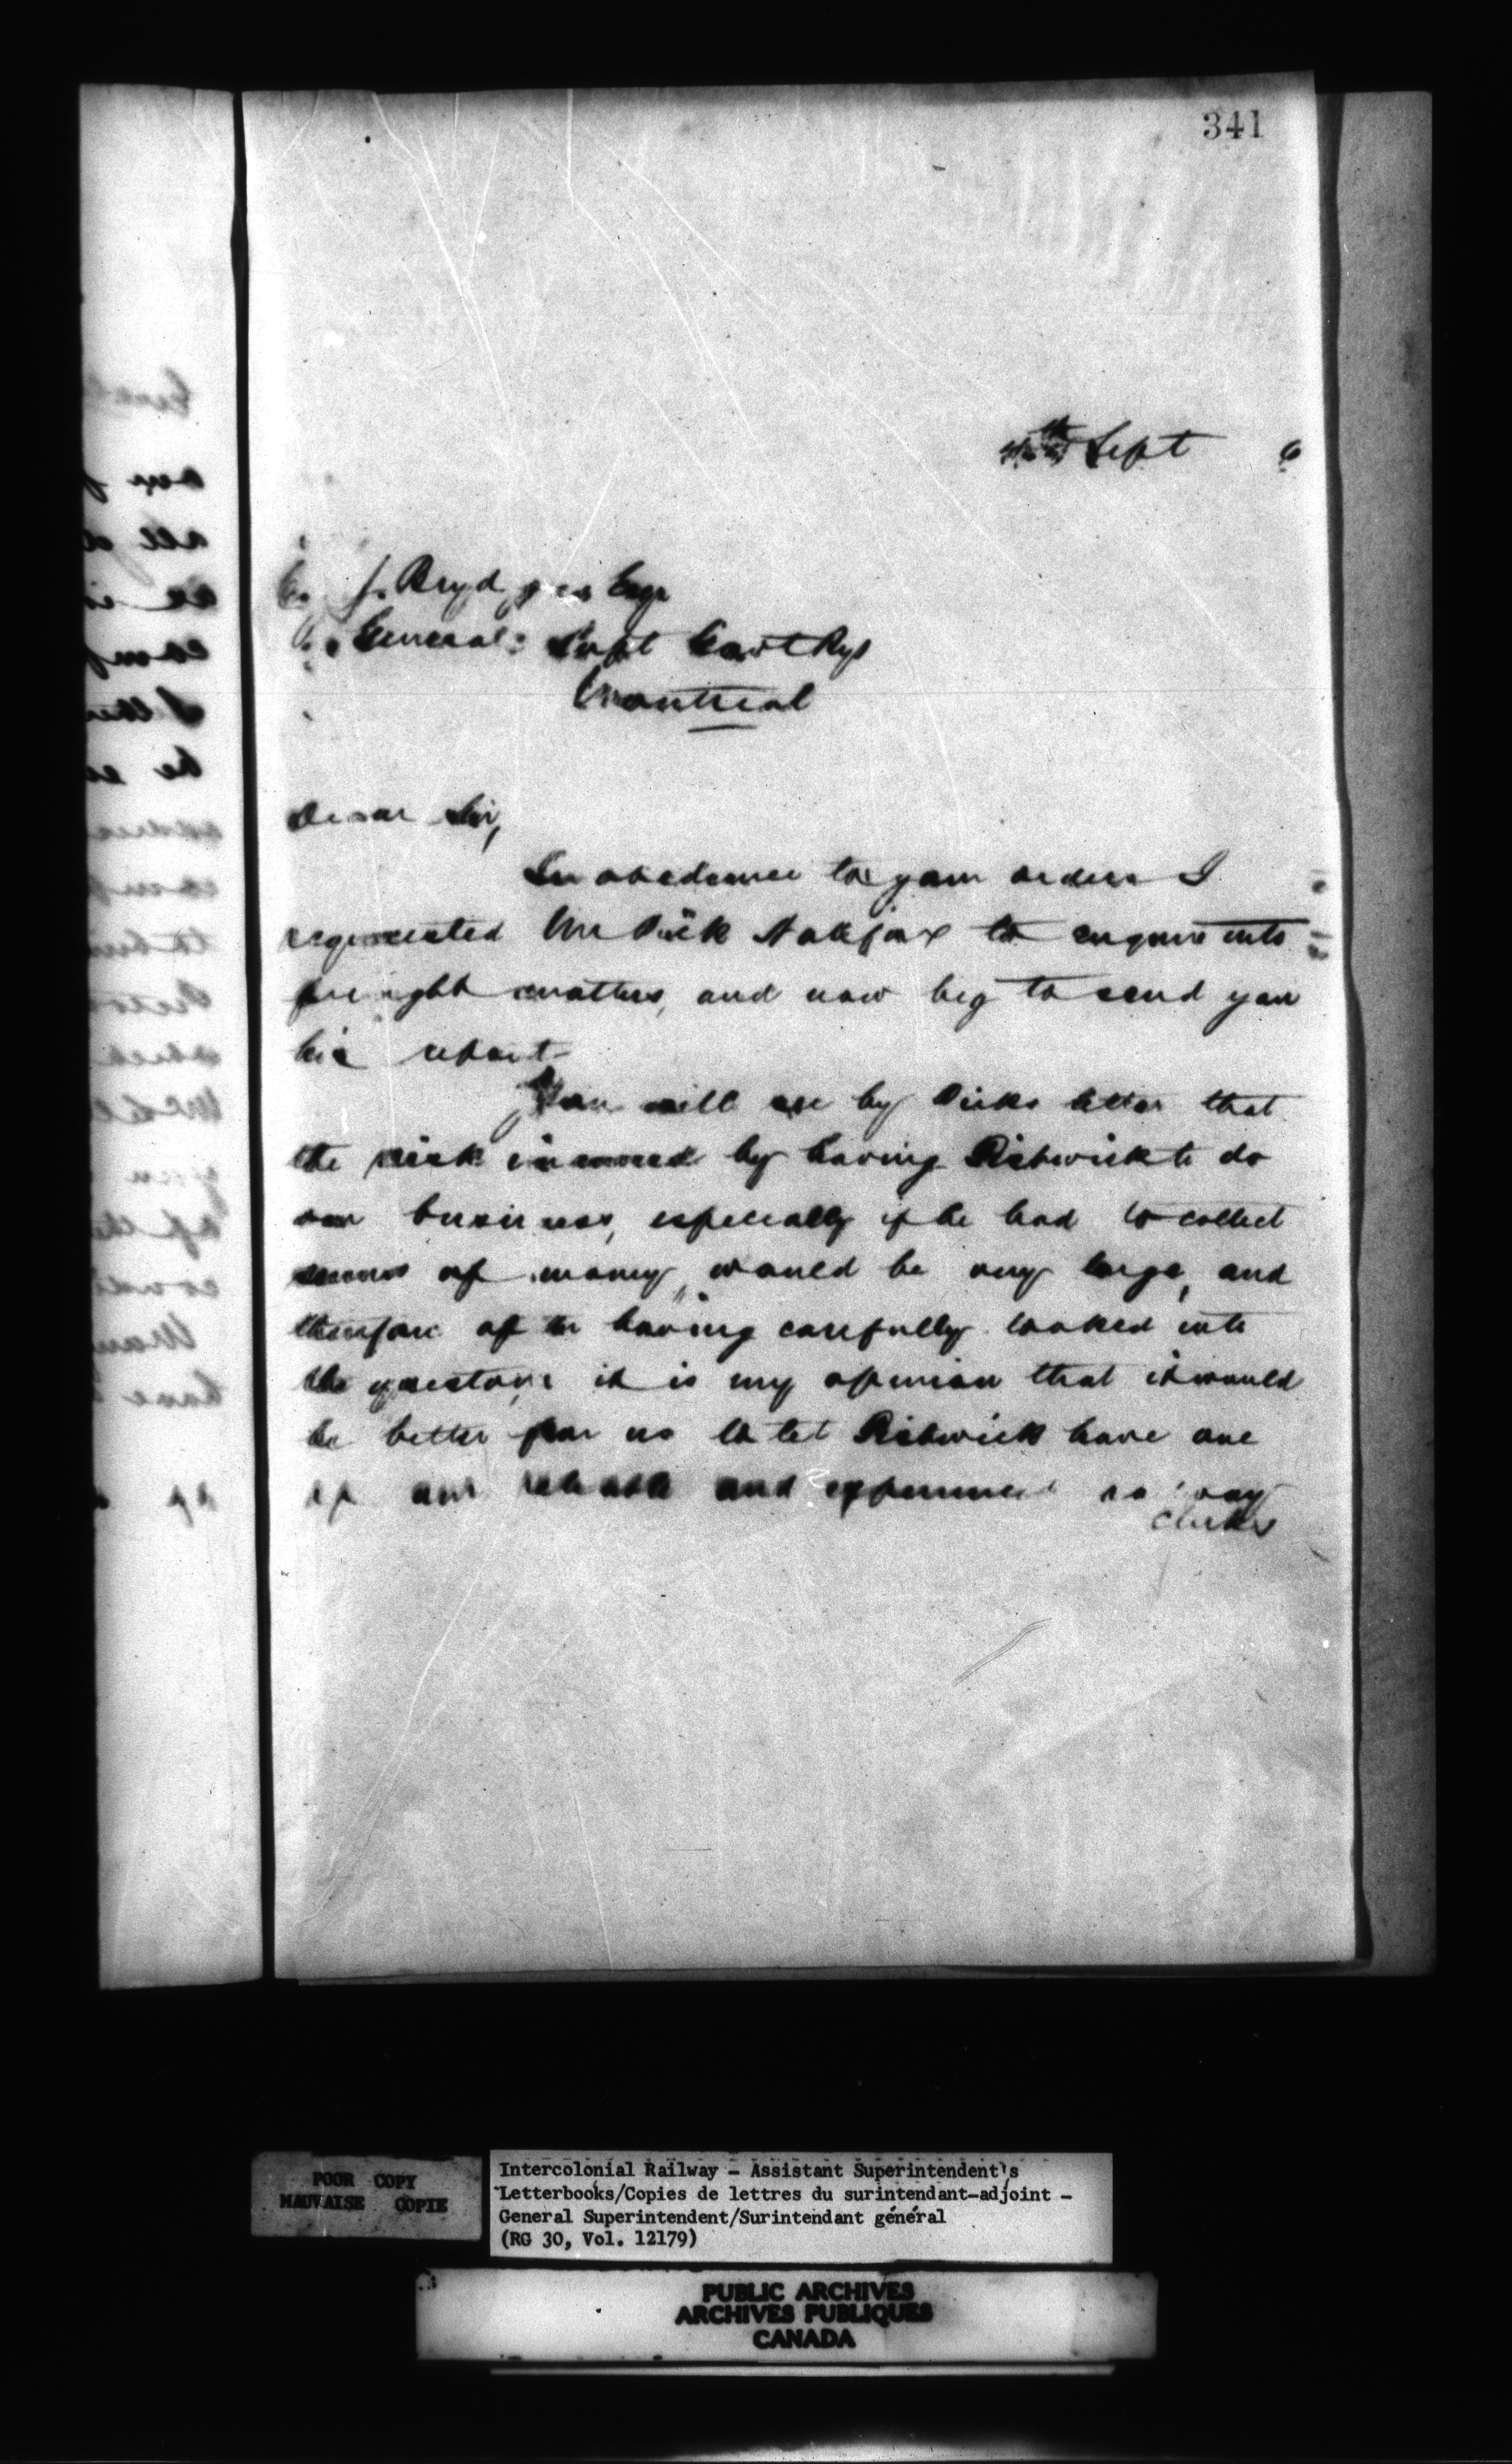 341
Sept 6
C. J. Brydges Esqr
General Supt Govt Rys
Montreal
Dear Sir,
In obedience to your orders I
requested Mr Dick Halifax to enquire into
freight matters, and now beg to send you
his report
You will see by Dicks letter that
the risk incurred by having Pickwick to do
our business, especially if he had to collect
sums of money, would be very large, and
therefore after having carefully looked into
the question it is my opinion that it would
be better for us to let have one
of our reliable and experienced
Clerks
POOR COPY
MAUVAISE COPIE
Intercolonial Railway - Assistant Superintendent's
Letterbooks/Copies de lettres du surintendant-adjoint -
General Superintendent/Surintendant général
(RG 30, Vol. 12179)
PUBLIC ARCHIVES
ARCHIVES PUBLIQUES
CANADA